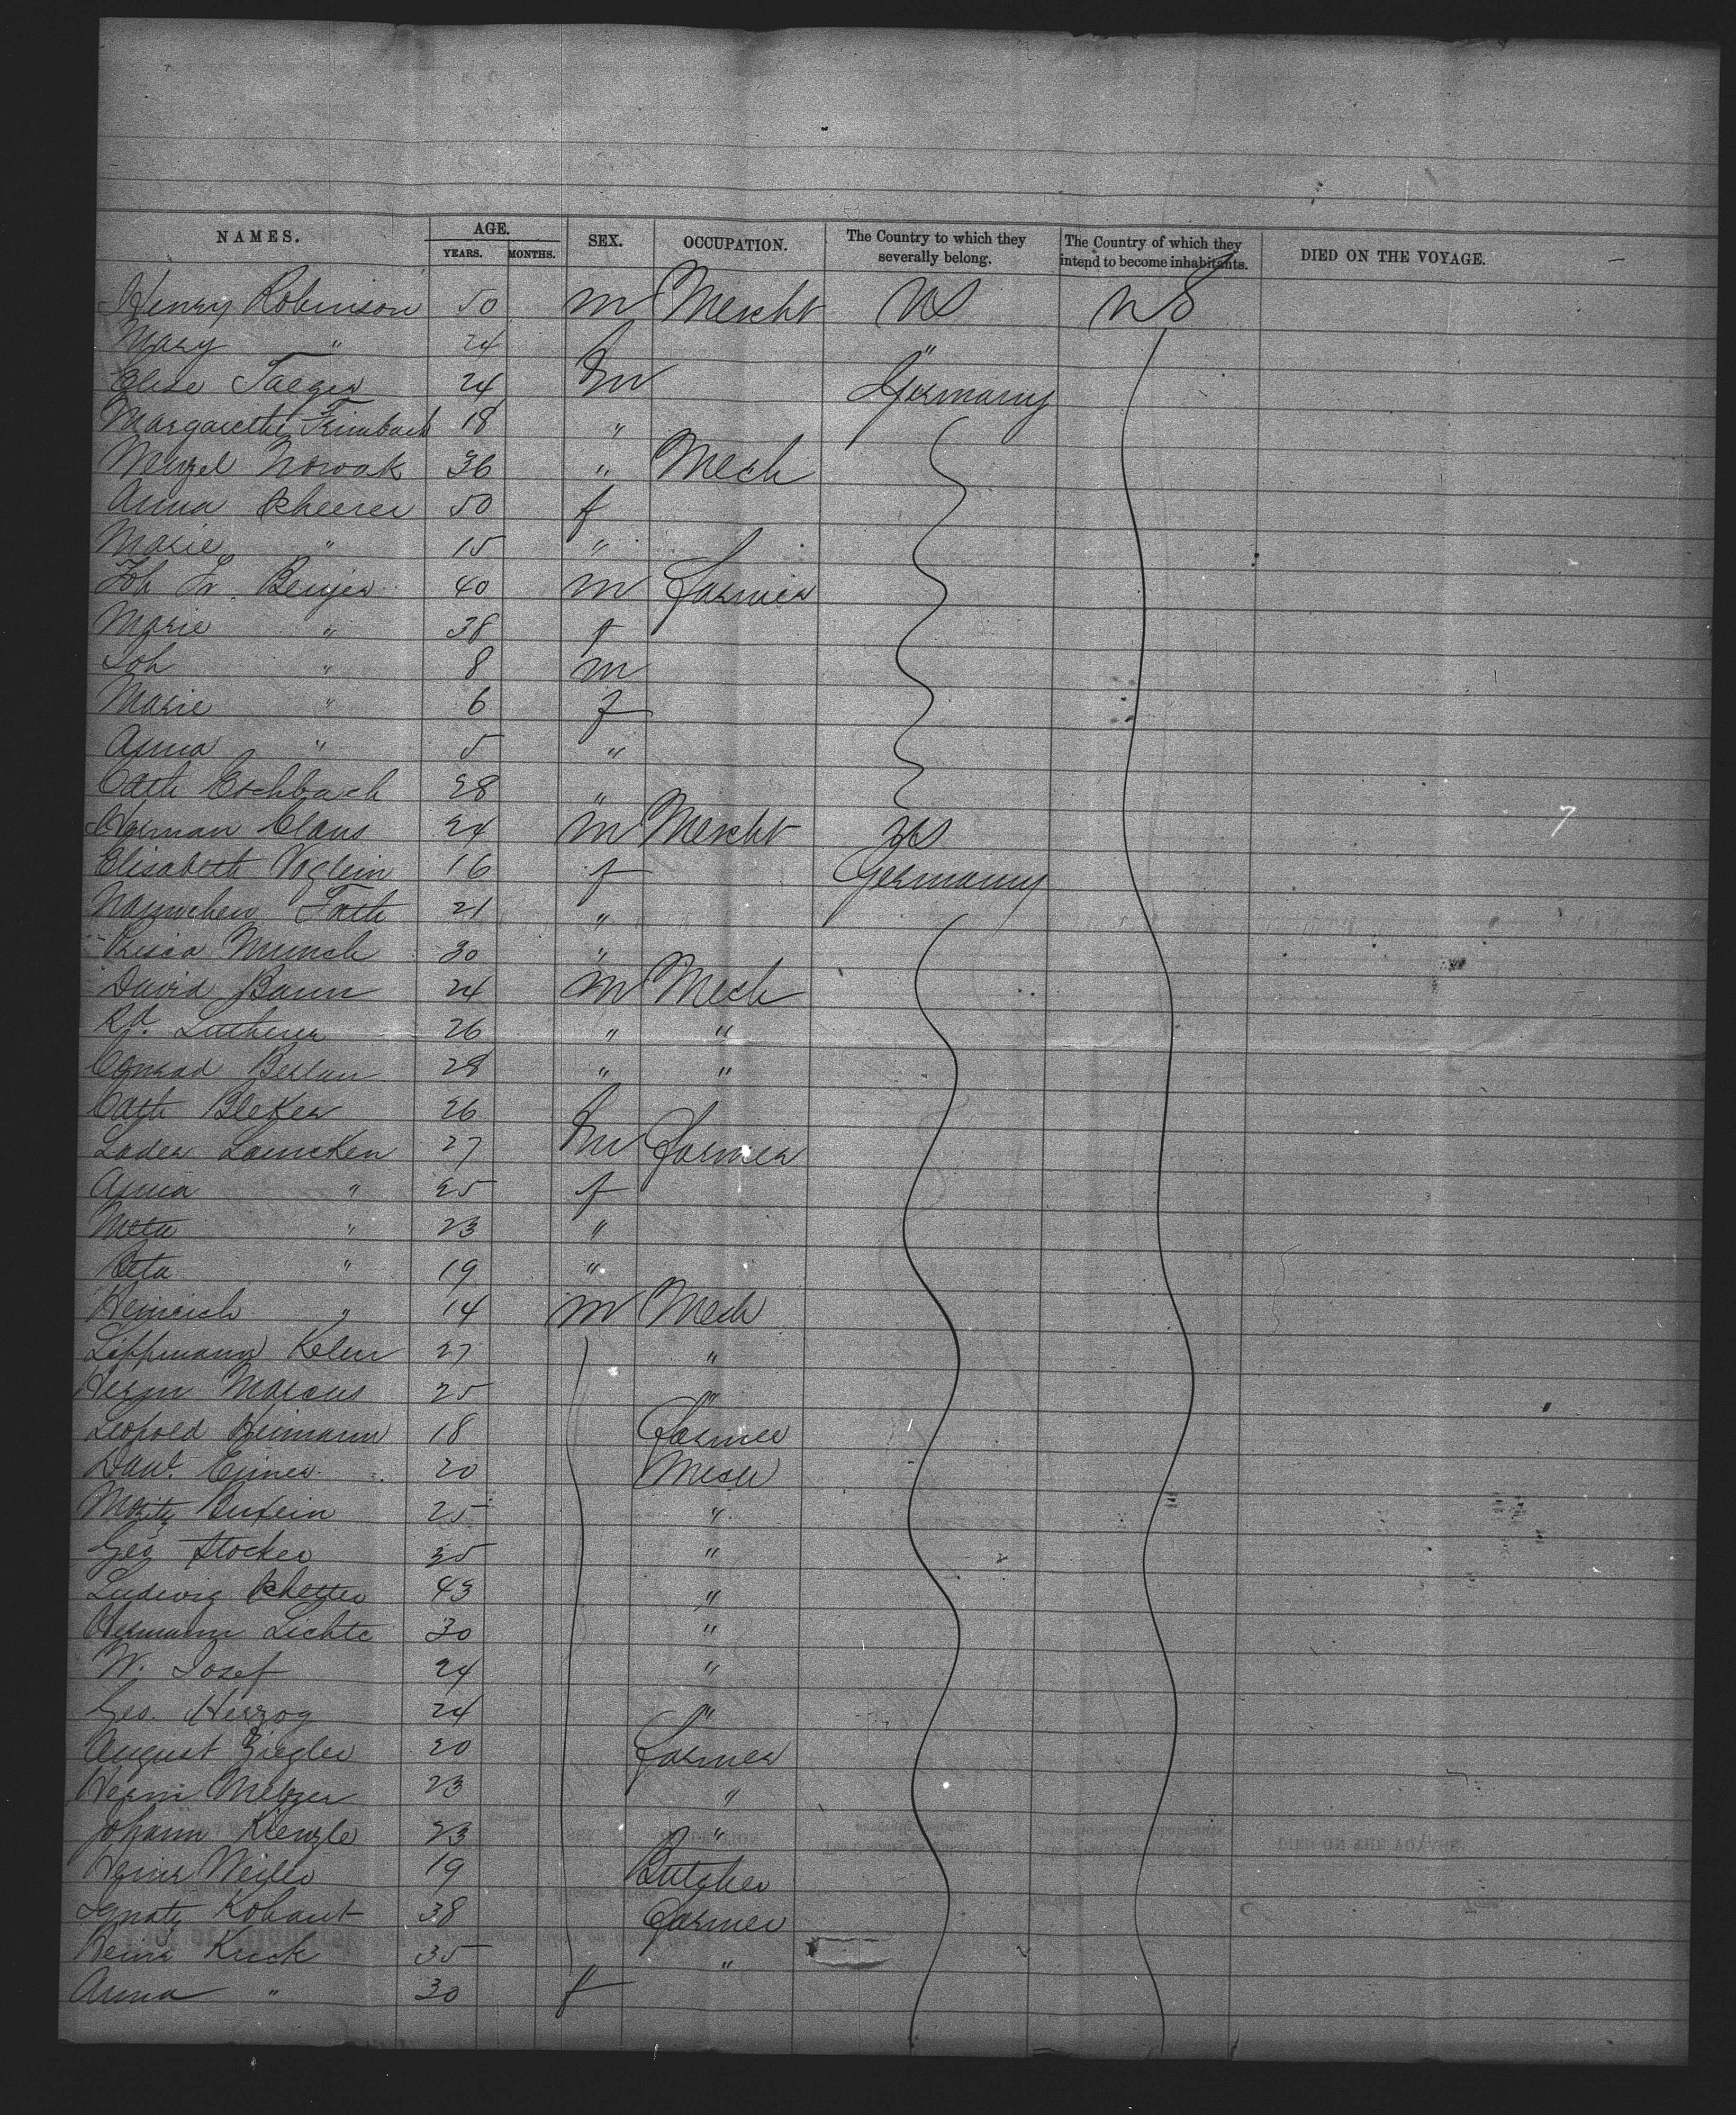 NAMES. AGE. YEARS. MONTHS. SEX. OCCUPATION. The Country to which they severally belong. The Country of which they intend to become inhabitants. DIED ON THE VOYAGE.
Henry Robinson 50 m Mercht US US
Mary " 24 "
Elise Jaeger 24 Germany
Margarethe Trimbach 18 "
Wenzel Nowak 36 " Mech
Anna Scheerer 50 f
Marie " 15 "
Joh Fr. Benjes 40 m Farmer
Marie " 38 f
Joh " 8 m
Marie " 6 f
Anna " 5 "
Cath Eschbach 28 "
Herman Claus 24 m Mercht US
Elisabeth Voglein 16 f Germany
Nannchen Fath 21 "
Munch 30 "
David Baum 24 m Mech
Rd. Lutherer 26 " "
Conrad 28 " "
Cath Bleker 26
Lader 27 m Farmer
Anna " 25 f
Meta " 23 "
Beta " 19 "
Heinrich " 14 m Mech
Lippmann 27 "
Herm Marcus 25 "
Leopold Heimann 18 Farmer
20 Mech
Moritz 25 "
Geo Stocker 35 "
Ludwig 43 "
Hermann Lichte 30 "
W. Josef 24 "
Geo. Herzog 24 "
August Ziegler 20 Farmer
Herm Metzger 23 "
Johann Kienzle 23 "
Heinr Weiler 19 Butcher
Ignatz Kohaut 38 Farmer
Heinr Kuck 35 "
Anna " 30 f